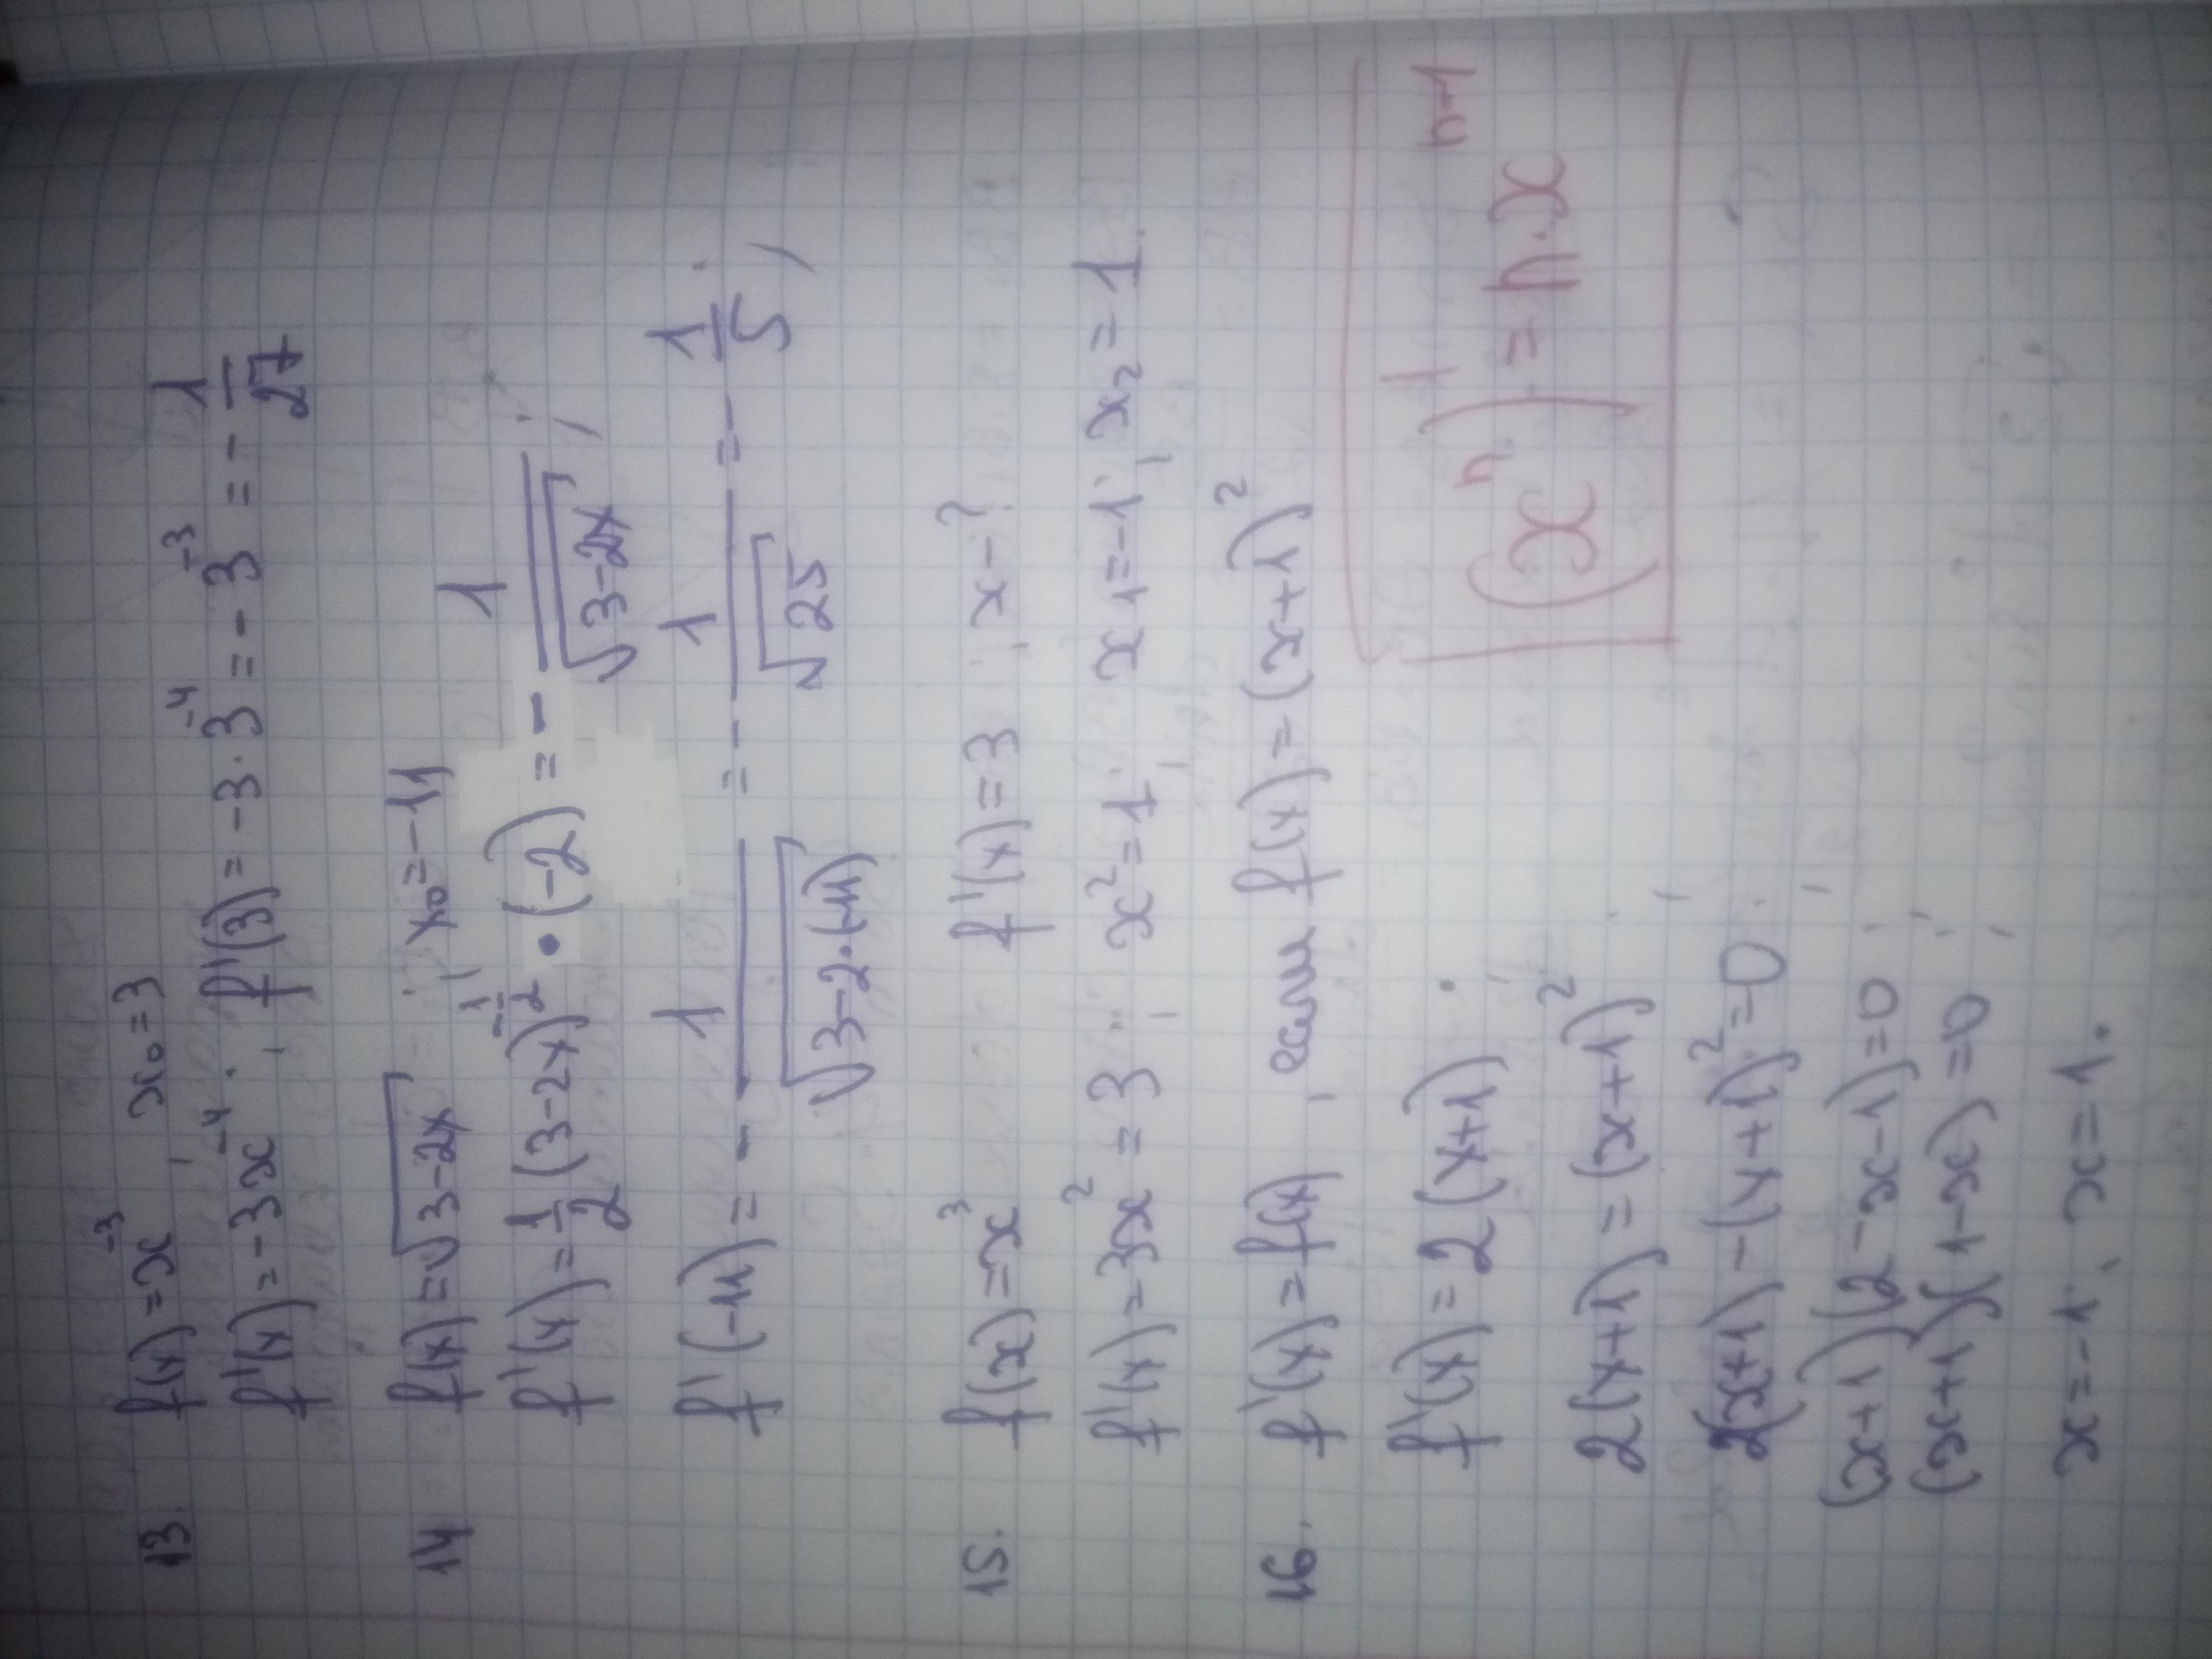 13. f(x)=x⁻³, x₀=3
f'(x)=-3x⁻⁴; f'(3)=-3·3⁻⁴=-3⁻³=-1/27
14 f(x)=√(3-2x); x₀=-11
f'(x)=1/2(3-2x)^(-1/2)·(-2)=-1/√(3-2x);
f'(-11)=-1/√(3-2·(-11))=-1/√25=-1/5;
15. f(x)=x³ f'(x)=3, x-?
f'(x)=3x²=3; x²=1; x₁=-1; x₂=1.
16. f'(x)=f(x), если f(x)=(x+1)²
f'(x)=2(x+1);
2(x+1)=(x+1)²;
2(x+1)-(x+1)²=0;
(x+1)(2-x-1)=0;
(x+1)(1-x)=0;
x=-1; x=1.
(xⁿ)'=n·xⁿ⁻¹